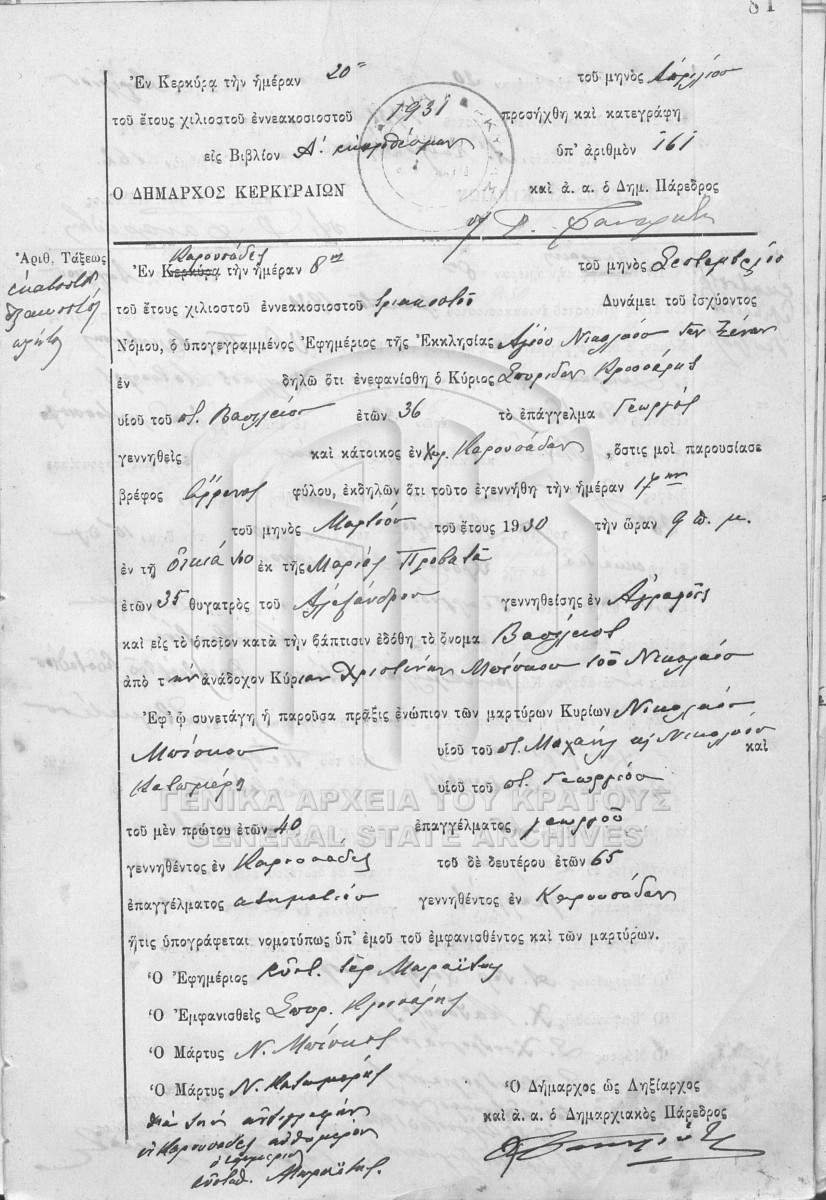 81
Ἐν Κερκύρᾳ τὴν ἡμέραν 20 τοῦ μηνὸς Ἀπριλίου
τοῦ ἔτους χιλιοστοῦ ἐννεακοσιοστοῦ 1931 προσήχθη καὶ κατεγράφη
εἰς Βιβλίον Α΄. ἐκπροθέσμων ὑπ' ἀριθμὸν 161
Ο ΔΗΜΑΡΧΟΣ ΚΕΡΚΥΡΑΙΩΝ καὶ ἀ. α. ὁ Δημ. Πάρεδρος
Ἀριθ. Τάξεως
ἑκατοστὸν
Καρουσάδες
Ἐν Κερκύρᾳ τὴν ἡμέραν 8ην τοῦ μηνὸς Σεπτεμβρίου
τοῦ ἔτους χιλιοστοῦ ἐννεακοσιοστοῦ τριακοστοῦ Δυνάμει τοῦ ἰσχύοντος
Νόμου, ὁ ὑπογεγραμμένος Ἐφημέριος τῆς Ἐκκλησίας Ἁγίου Νικολάου τῶν Ξένων
ἐν δηλῶ ὅτι ἐνεφανίσθη ὁ Κύριος Σπυρίδων
υἱοῦ τοῦ ποτ. Βασιλείου ἐτῶν 36 τὸ ἐπάγγελμα Γεωργὸς
γεννηθεὶς καὶ κάτοικος ἐν χωρ. Καρουσάδων, ὅστις μοὶ παρουσίασε
βρέφος ἄρρενος φύλου, ἐκδηλῶν ὅτι τοῦτο ἐγεννήθη τὴν ἡμέραν 17ην
τοῦ μηνὸς Μαρτίου τοῦ ἔτους 1930 τὴν ὥραν 9 π. μ.
ἐν τῇ οἰκίᾳ του ἐκ τῆς Μαρίας Προβατᾶ
ἐτῶν 35 θυγατρὸς τοῦ Ἀλεξάνδρου γεννηθείσης ἐν Ἀγραφοῖς
καὶ εἰς τὸ ὁποῖον κατὰ τὴν βάπτισιν ἐδόθη τὸ ὄνομα Βασίλειος
ἀπὸ τὴν ἀνάδοχον Κύριαν Χριστίνην Μπόσκου τοῦ Νικολάου
Ἐφ' ᾧ συνετάγη ἡ παροῦσα πρᾶξις ἐνώπιον τῶν μαρτύρων Κυρίων Νικολάου
Μπόσκου υἱοῦ τοῦ ποτ. Μιχαήλ κ Νικολάου καὶ
Κατωμέρη υἱοῦ τοῦ ποτ. Γεωργίου
ΓΕΝΙΚΑ ΑΡΧΕΙΑ ΤΟΥ ΚΡΑΤΟΥΣ
GENERAL STATE ARCHIVES
τοῦ μὲν πρώτου ἐτῶν 40 ἐπαγγέλματος γεωργοῦ
γεννηθέντος ἐν Καρουσάδες τοῦ δὲ δευτέρου ἐτῶν 65
ἐπαγγέλματος κτηματίου γεννηθέντος ἐν Καρουσάδων
ἥτις ὑπογράφεται νομοτύπως ὑπ' ἐμοῦ τοῦ ἐμφανισθέντος καὶ τῶν μαρτύρων.
Ὁ Ἐφημέριος Εὐστ. ἱερ. Μαραΐτης
Ὁ Ἐμφανισθεὶς Σπυρ.
Ὁ Μάρτυς Ν. Μπόσκος
Ὁ Μάρτυς Ν. Κατωμέρης
Ὁ Δήμαρχος ὡς Ληξίαρχος
καὶ ἀ. α. ὁ Δημαρχιακὸς Πάρεδρος
διὰ τὴν ἀντιγραφὴν
ἐν Καρουσάδες αὐθημερὸν
ὁ ἐφημέριος
Εὐσταθ. Μαραΐτης